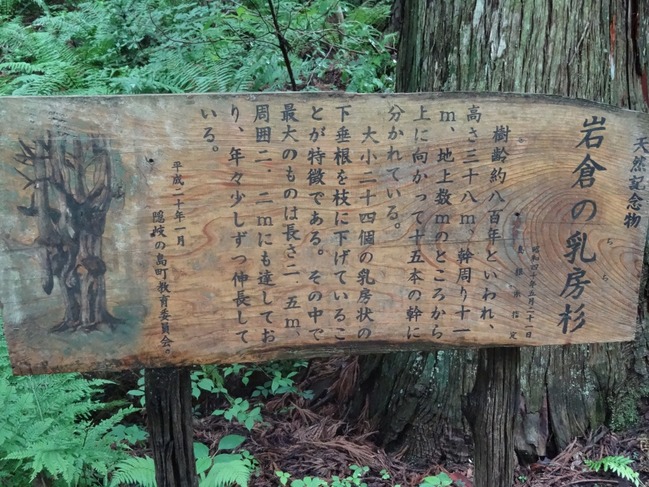 天然記念物
岩倉の乳房杉
ちち
昭和四十三年五月三十一日
島根県指定
樹齢約八百年といわれ、
高さ三十八m、幹周り十一
m、地上数mのところから
上に向かって十五本の幹に
分かれている。
大小二十四個の乳房状の
下垂根を枝に下げているこ
とが特徴である。その中で
最大のものは長さ二．五m、
周囲二．二mにも達してお
り、年々少しずつ伸長して
いる。
平成二十年一月
隠岐の島町教育委員会。